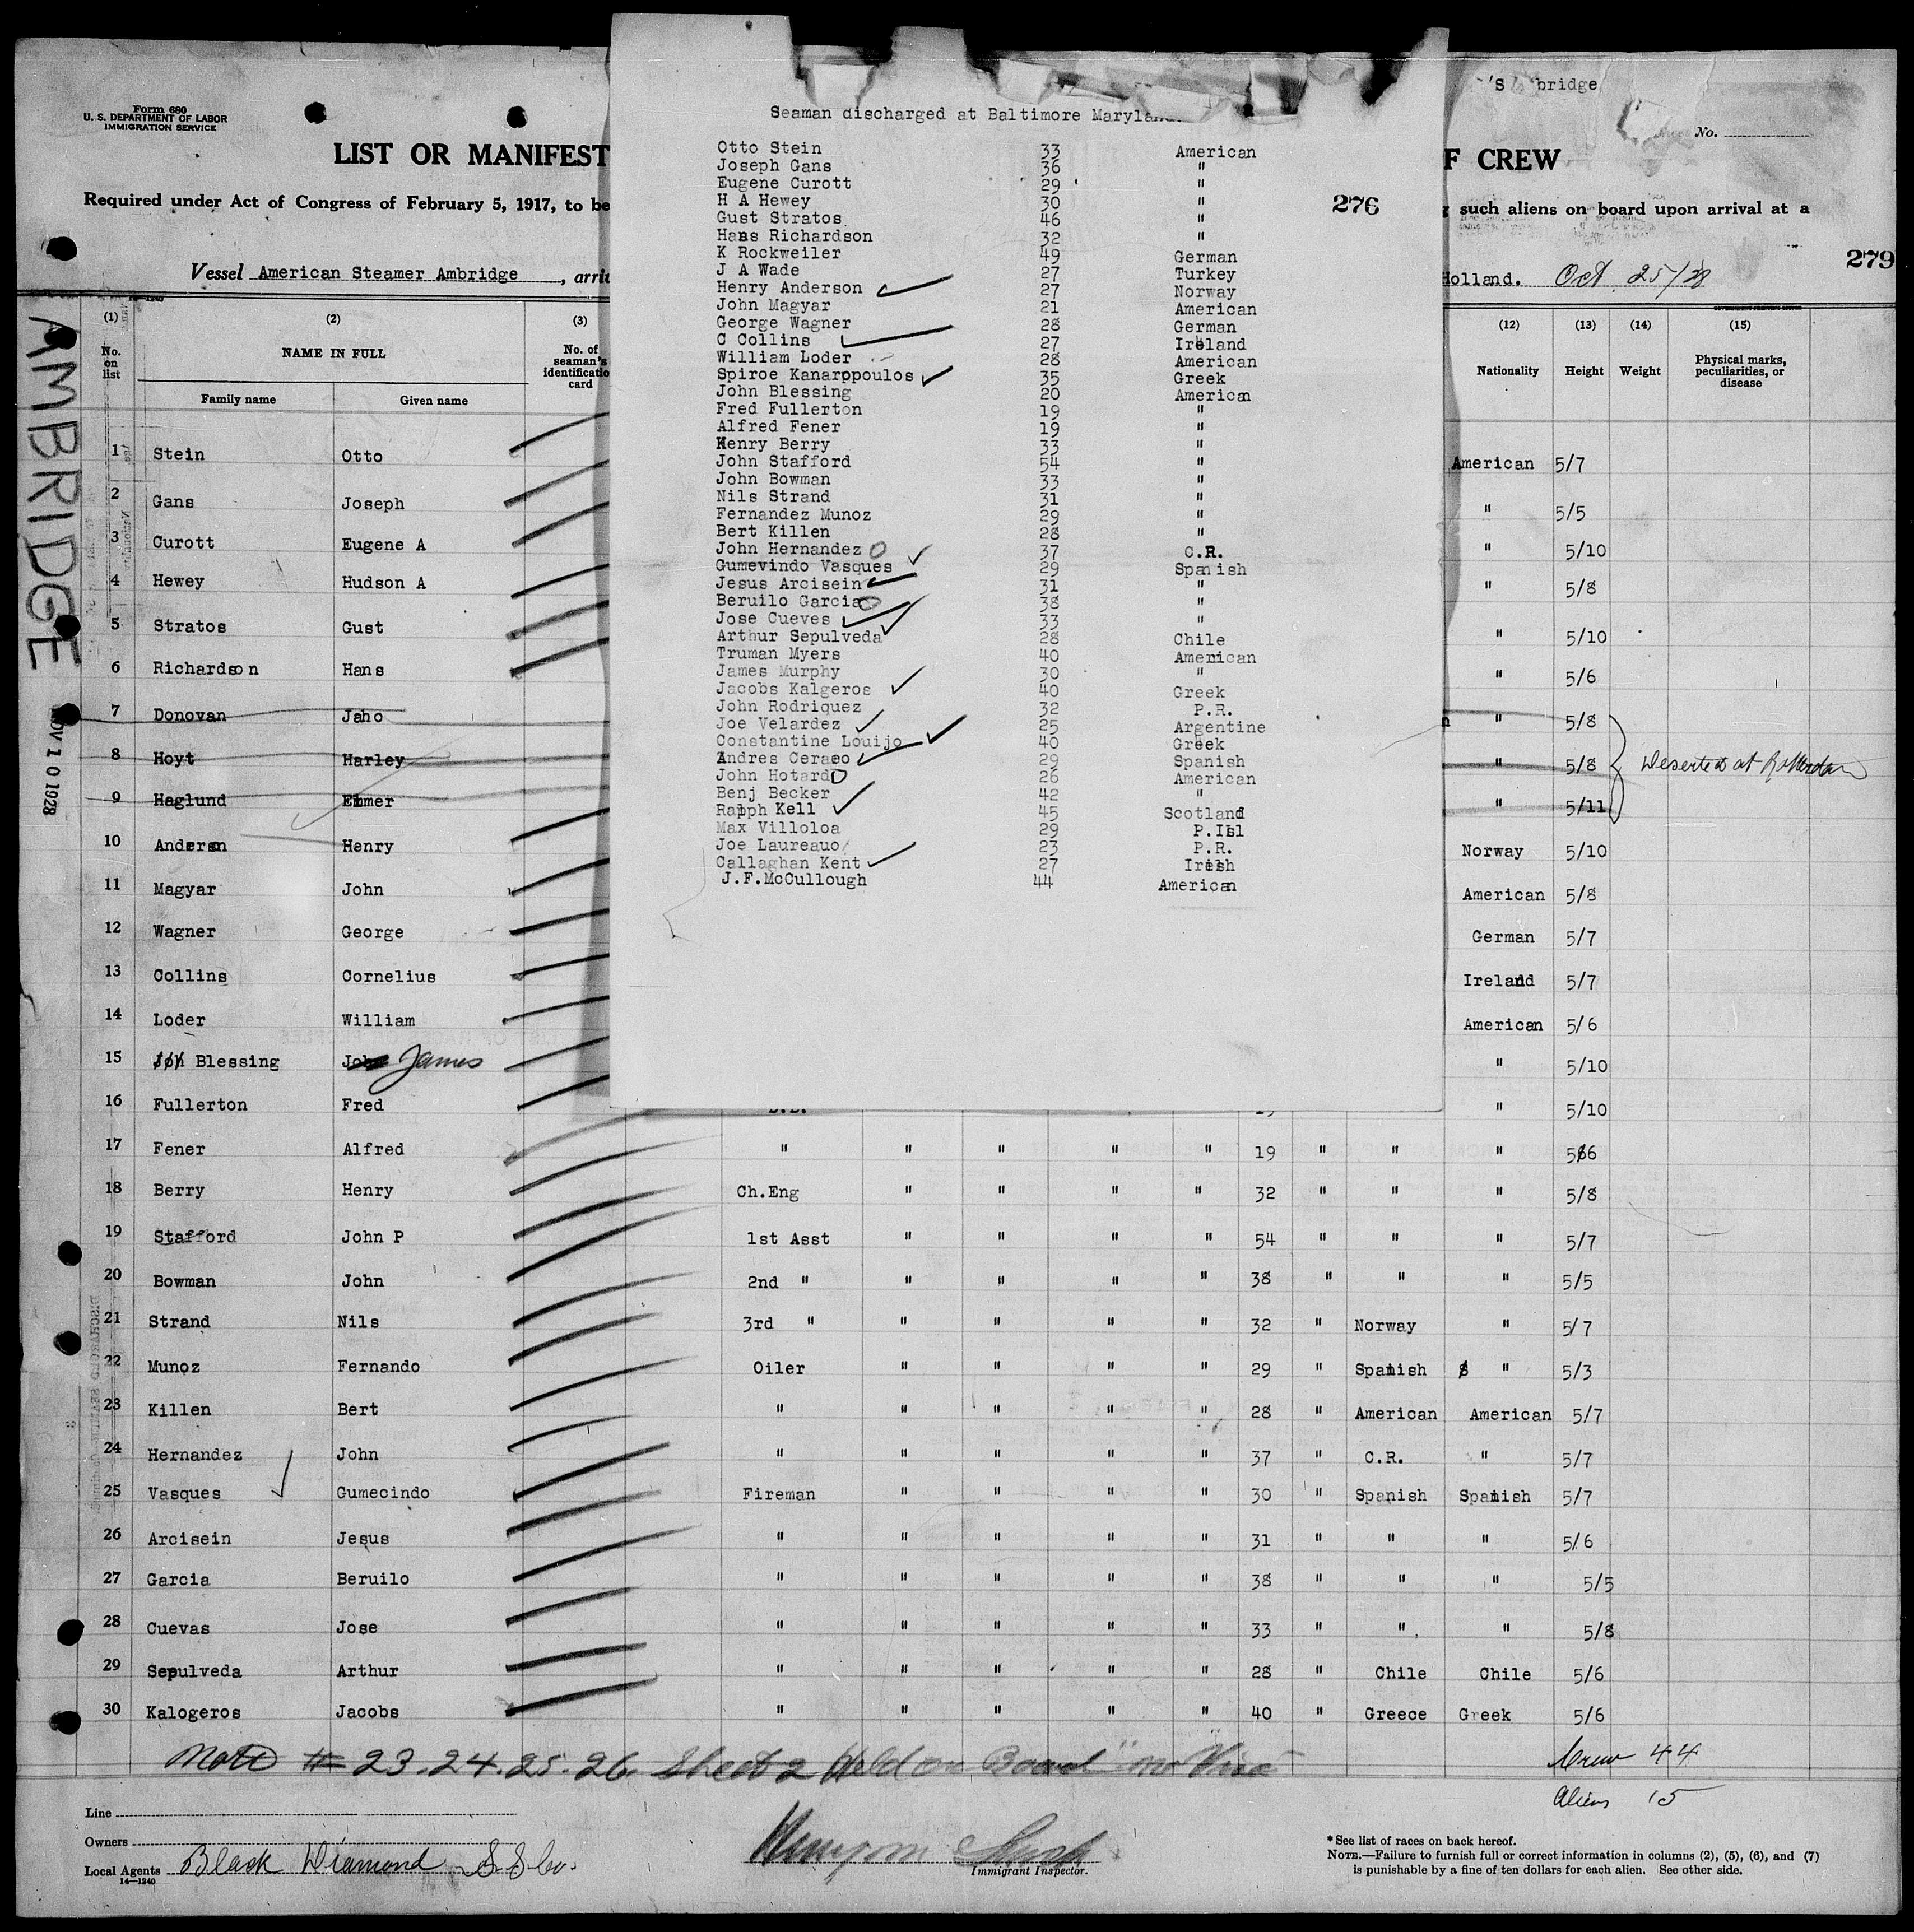 'S bridge
Form 680
U. S. DEPARTMENT OF LABOR
IMMIGRATION SERVICE
No.
LIST OR MANIFEST
F CREW
Required under Act of Congress of February 5, 1917, to be
such aliens on board upon arrival at a
279
Vessel American Steamer Ambridge, arri
Holland. Oct 25/28
Seaman discharged at Baltimore Maryland.
276
Otto Stein 33 American
Joseph Gans 36 "
Eugene Curott 29 "
H A Hewey 30 "
Gust Stratos 46 "
Hans Richardson 32 "
K Rockweiler 49 German
J A Wade 27 Turkey
Henry Anderson 27 Norway
John Magyar 21 American
George Wagner 28 German
C Collins 27 Ireland
William Loder 28 American
Spiroe Kanaropoulos 35 Greek
John Blessing 20 American
Fred Fullerton 19 "
Alfred Fener 19 "
Henry Berry 33 "
John Stafford 54 "
John Bowman 33 "
Nils Strand 31 "
Fernandez Munoz 29 "
Bert Killen 28 "
John Hernandez 37 C.R.
Gumevindo Vasques 29 Spanish
Jesus Arcisein 31 "
Beruilo Garcia 38 "
Jose Cueves 33 "
Arthur Sepulveda 28 Chile
Truman Myers 40 American
James Murphy 30 "
Jacobs Kalgeros 40 Greek
John Rodriquez 32 P.R.
Joe Velardez 25 Argentine
Constantine Louijo 40 Greek
Andres Ceraeo 29 Spanish
John Hotard 26 American
Benj Becker 42 "
Ralph Kell 45 Scotland
Max Villoloa 29 P.Isl
Joe Laureauo 23 P.R.
Callaghan Kent 27 Irish
J.F.McCullough 44 American
AMBRIDGE
NOV 10 1928
(1) (2) (3) (12) (13) (14) (15)
No. on list
NAME IN FULL
Family name Given name
No. of seaman's identificatio card
Nationality Height Weight Physical marks, peculiarities, or disease
1 Stein Otto American 5/7
2 Gans Joseph " 5/5
3 Curott Eugene A " 5/10
4 Hewey Hudson A " 5/8
5 Stratos Gust " 5/10
6 Richardson Hans " 5/6
7 Donovan Jaho n " 5/8
8 Hoyt Harley " 5/8 Deserted at Rotterdam
9 Haglund Elmer " 5/11
10 Anderson Henry Norway 5/10
11 Magyar John American 5/8
12 Wagner George German 5/7
13 Collins Cornelius Ireland 5/7
14 Loder William American 5/6
15 Joh Blessing John James " 5/10
16 Fullerton Fred " 5/10
17 Fener Alfred " " " " " 19 " " " 5/6
18 Berry Henry Ch.Eng " " " " 32 " " " 5/8
19 Stafford John P 1st Asst " " " " 54 " " " 5/7
20 Bowman John 2nd " " " " " 38 " " " 5/5
21 Strand Nils 3rd " " " " " 32 " Norway " 5/7
22 Munoz Fernando Oiler " " " " 29 " Spanish " 5/3
23 Killen Bert " " " " " 28 " American American 5/7
24 Hernandez John " " " " " 37 " C.R. " 5/7
25 Vasques Gumecindo Fireman " " " " 30 " Spanish Spanish 5/7
26 Arcisein Jesus " " " " " 31 " " " 5/6
27 Garcia Beruilo " " " " " 38 " " " 5/5
28 Cuevas Jose " " " " " 33 " " " 5/8
29 Sepulveda Arthur " " " " " 28 " Chile Chile 5/6
30 Kalogeros Jacobs " " " " " 40 " Greece Greek 5/6
Note # 23.24.25.26. Sheet 2 Held on Board "no Visa"
Crew 44
Aliens 15
Line
Owners
Local Agents Black Diamond S.S Co.
14—1240
Immigrant Inspector.
* See list of races on back hereof.
NOTE.—Failure to furnish full or correct information in columns (2), (5), (6), and (7)
is punishable by a fine of ten dollars for each alien. See other side.